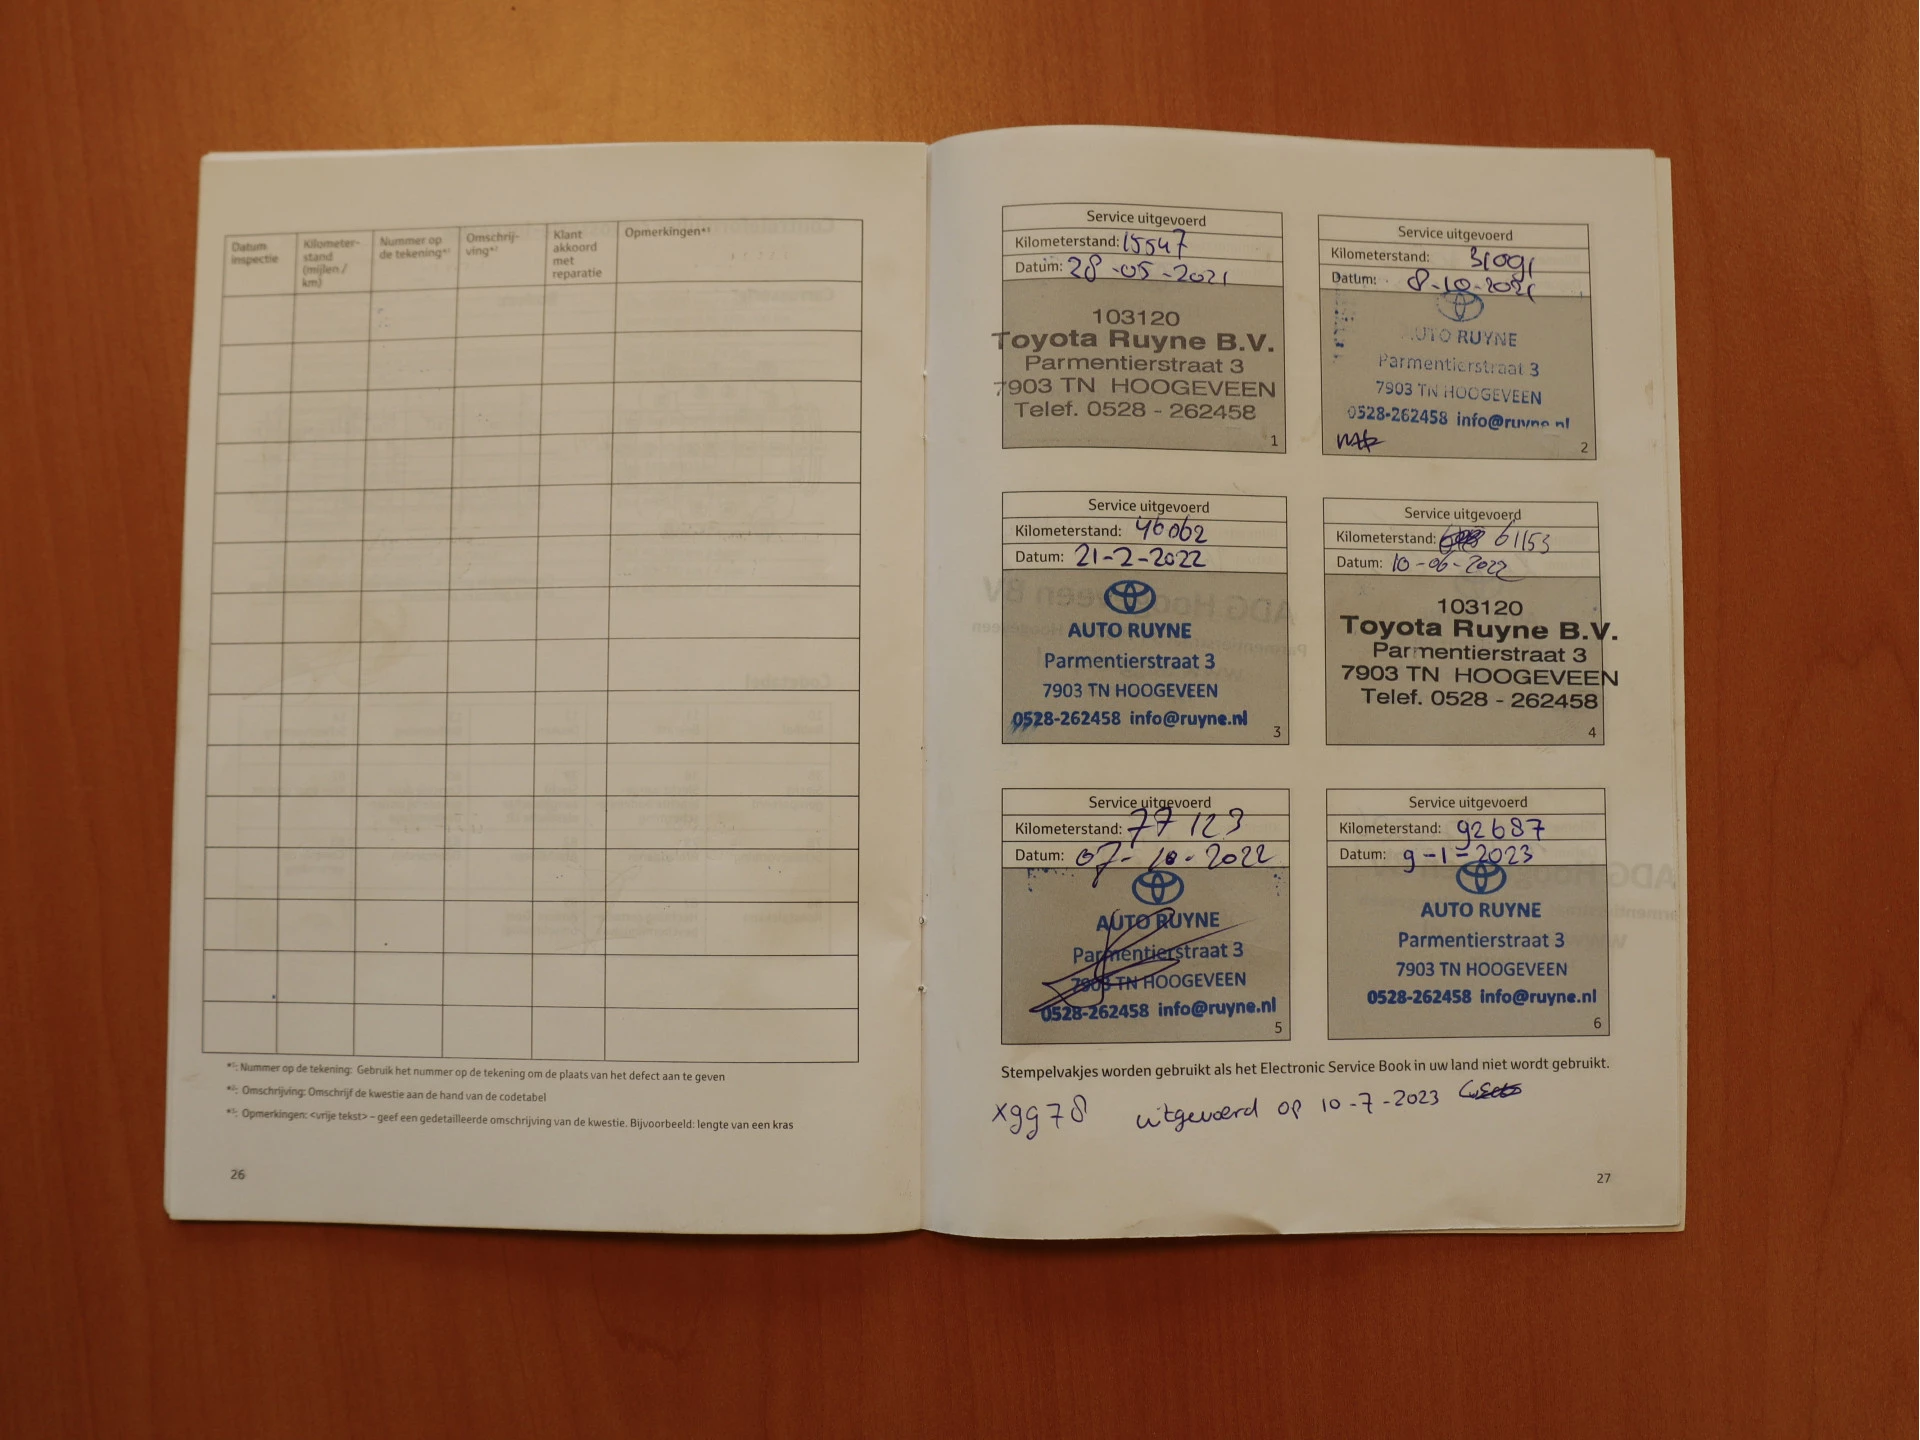 Datum inspectie
Kilometer-stand (mijlen / km)
Nummer op de tekening*¹
Omschrij-ving*²
Klant akkoord met reparatie
Opmerkingen*³
*¹: Nummer op de tekening: Gebruik het nummer op de tekening om de plaats van het defect aan te geven
*²: Omschrijving: Omschrijf de kwestie aan de hand van de codetabel
*³: Opmerkingen: <vrije tekst> – geef een gedetailleerde omschrijving van de kwestie. Bijvoorbeeld: lengte van een kras
26
Service uitgevoerd
Kilometerstand: 15547
Datum: 28-05-2021
103120
Toyota Ruyne B.V.
Parmentierstraat 3
7903 TN HOOGEVEEN
Telef. 0528 - 262458
1
Service uitgevoerd
Kilometerstand: 31091
Datum: 8-10-2021
AUTO RUYNE
Parmentierstraat 3
7903 TN HOOGEVEEN
0528-262458 info@ruyne.nl
2
Service uitgevoerd
Kilometerstand: 46062
Datum: 21-2-2022
AUTO RUYNE
Parmentierstraat 3
7903 TN HOOGEVEEN
0528-262458 info@ruyne.nl
3
Service uitgevoerd
Kilometerstand: 61153
Datum: 10-06-2022
103120
Toyota Ruyne B.V.
Parmentierstraat 3
7903 TN HOOGEVEEN
Telef. 0528 - 262458
4
Service uitgevoerd
Kilometerstand: 77123
Datum: 07-10-2022
AUTO RUYNE
Parmentierstraat 3
7903 TN HOOGEVEEN
0528-262458 info@ruyne.nl
5
Service uitgevoerd
Kilometerstand: 92687
Datum: 9-1-2023
AUTO RUYNE
Parmentierstraat 3
7903 TN HOOGEVEEN
0528-262458 info@ruyne.nl
6
Stempelvakjes worden gebruikt als het Electronic Service Book in uw land niet wordt gebruikt.
uitgevoerd op 10-7-2023
27